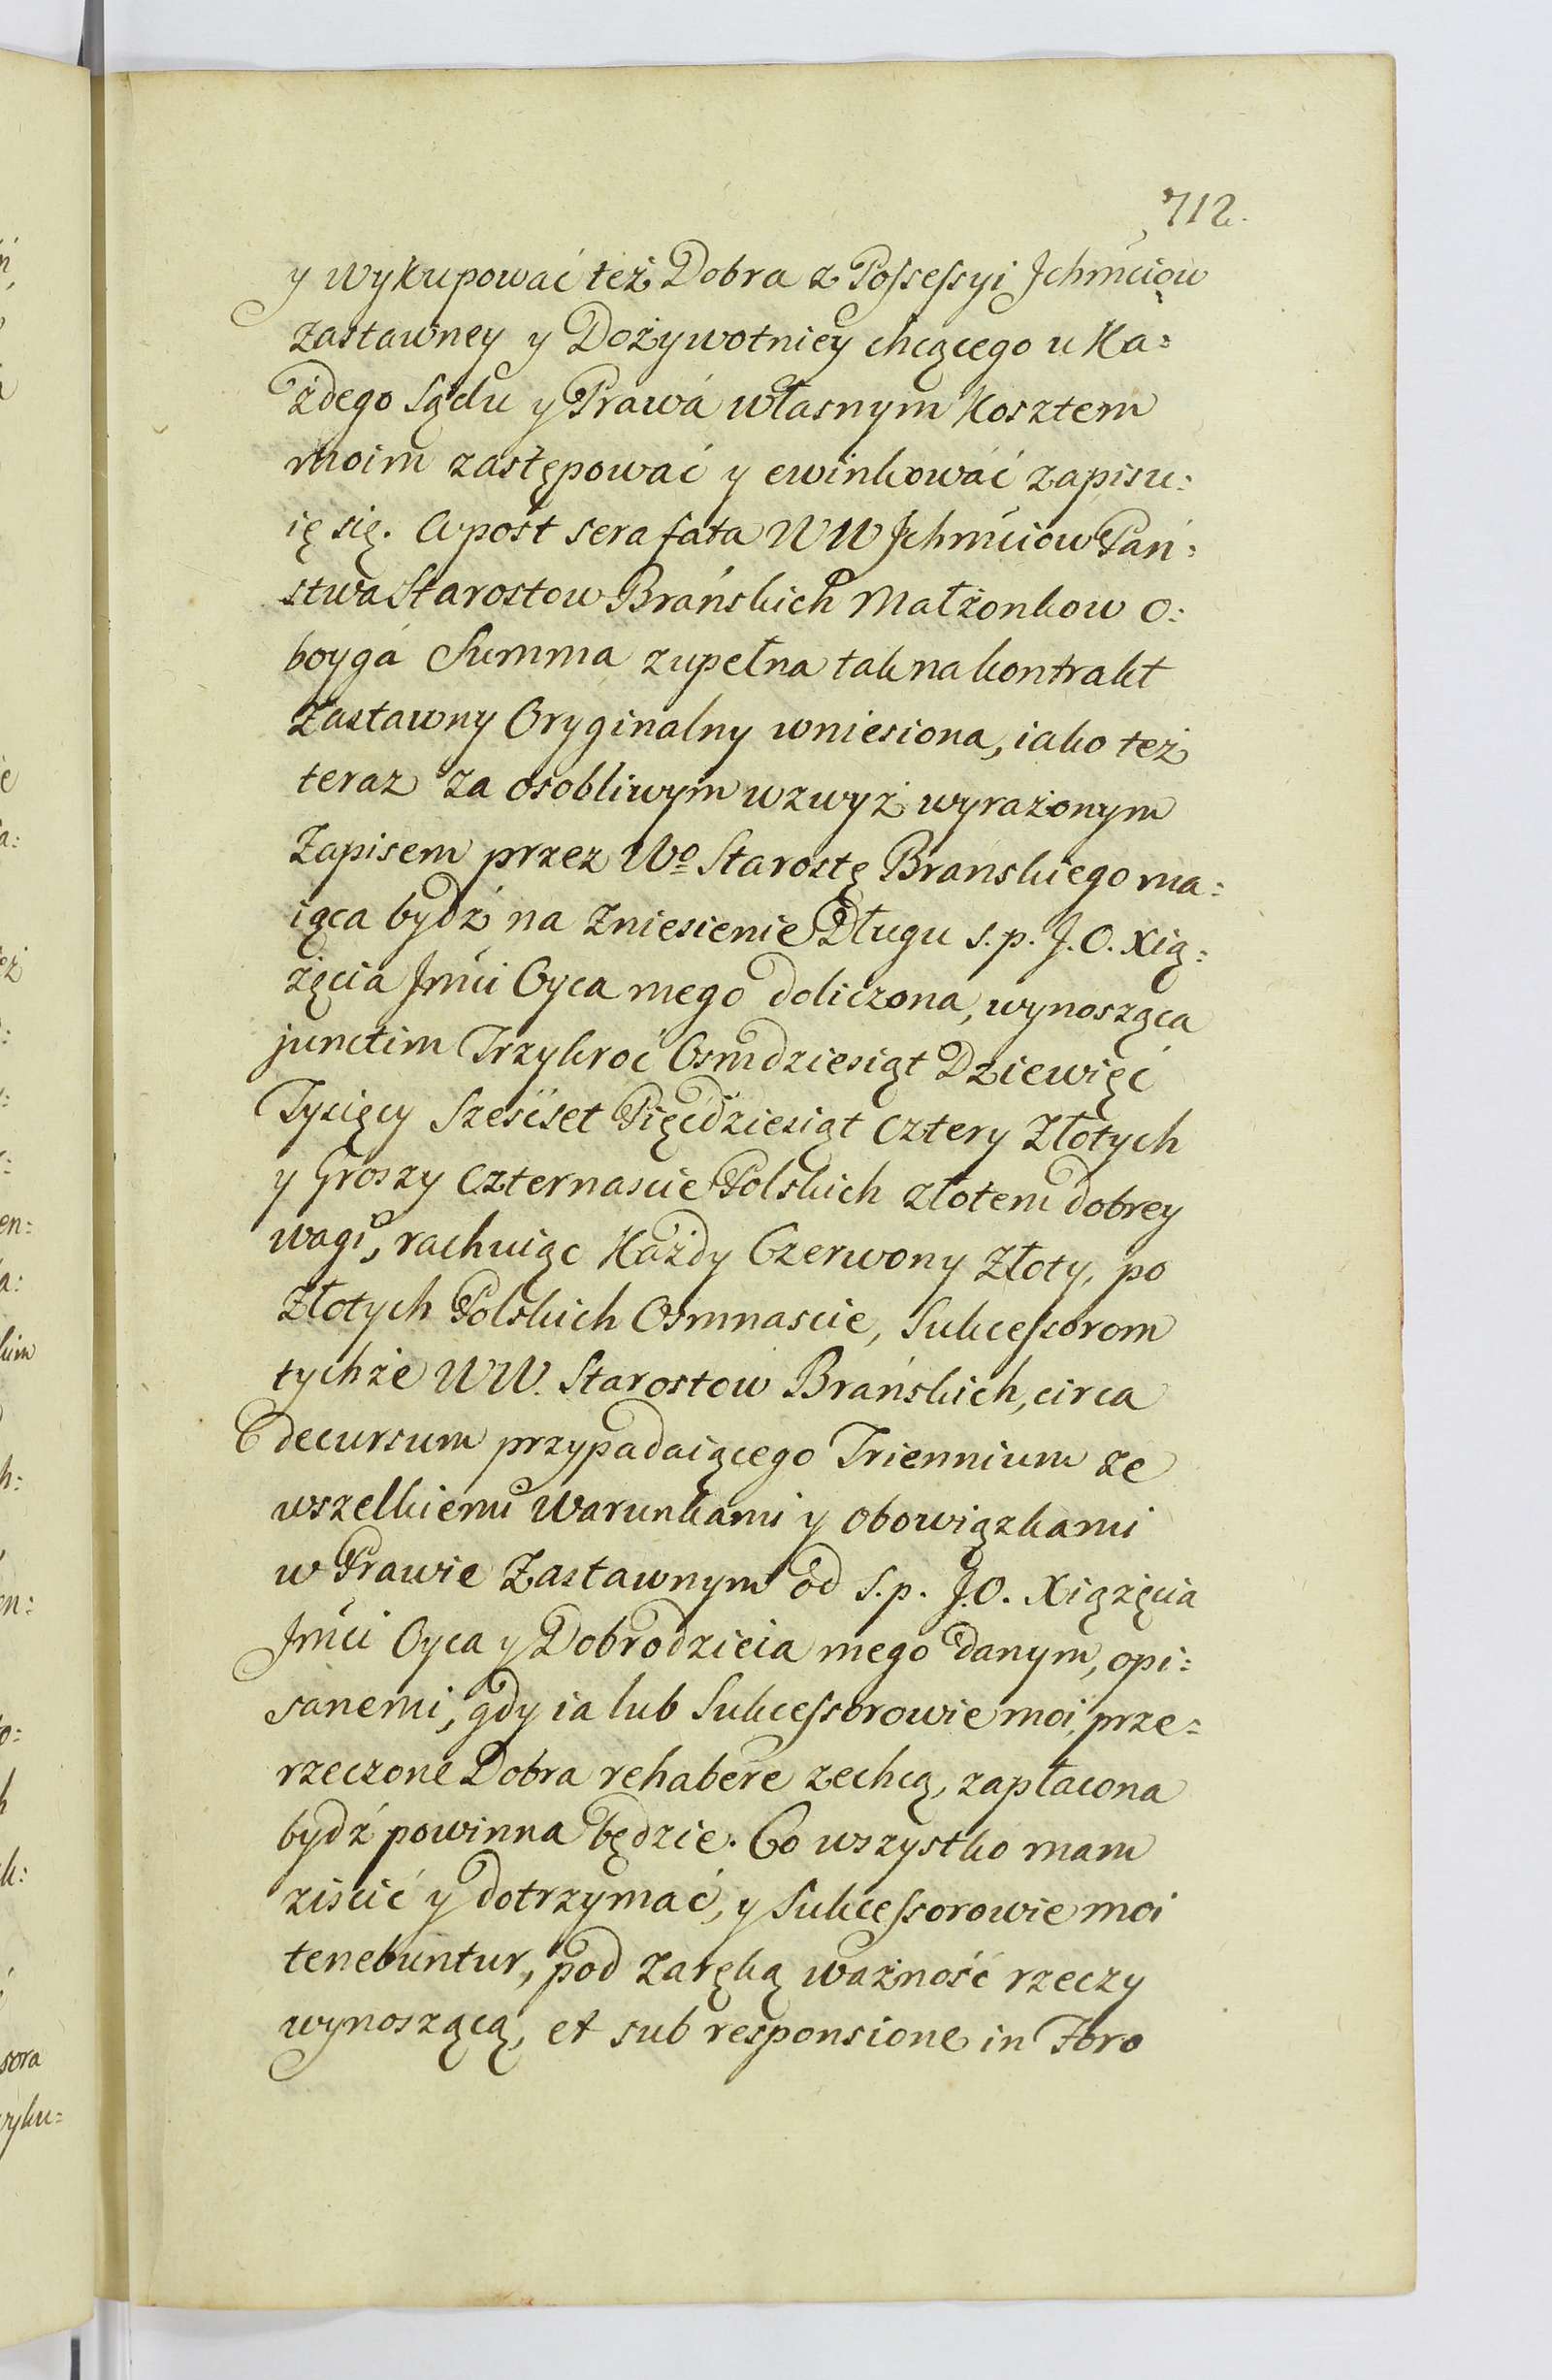 712.
y wykupować też Dobra z Possessyi Jchmciow
zastawney y Dożywotniey chcącego u Ka=
żdego Sądu y Prawá własnym Kosztem
moim zastępować y ewinkowáć zapisu=
ię się. A post sera fata WW Jchmciow Pań=
stwa Starostow Brańskich Małżonkow o=
boygá Summa zupełna tak na kontrakt
Zastawny Oryginalny wniesiona, iako też
teraz za osobliwym wzwyż wyrażonym
Zapisem przez Wo Starostę Branskiego ma=
iąca bydź na Zniesienie Długu s.p. J.O. Xią=
żęcia Jmci Oyca mego doliczona, wynosząca
junctim Trzykroć Osmdziesiąt Dziewięć
Tysięcy Szesćset Pięćdziesiąt Cztery Złotych
y Groszy Czternascie Polskich złotem dobrey
wagi, rachuiąc Każdy Czerwony Złoty, po
Złotych Polskich Osmnascie, Sukcessorom
tychże WW. Starostow Brańskich, circa
decursum przypadaiącego Triennium ze
wszelkiemi Warunkami y obowiązkami
w Prawie Zastawnym od s.p. J.O. Xiążęcia
Jmci Oyca y Dobrodzieia mego danym, opi=
sanemi, gdy ia lub Sukcessorowie moi, prze=
rzeczone Dobra rehabere zechcą, zapłacona
bydź powinna będzie. Co wszystko mam
ziscić y dotrzymać, y Sukcessorowie moi
tenebuntur, pod Zaręką ważność rzeczy
wynoszącą, et sub responsione in Foro